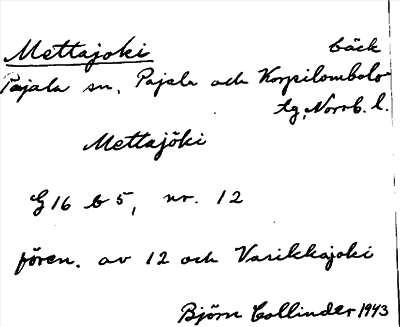 Mettajoki bäck
Pajala sn, Pajala och Korpilombolo
tg, Norrb. l.
Mettajöki
G16 b 5, nr. 12
fören. av 12 och Vasikkajoki
Björn Collinder 1943